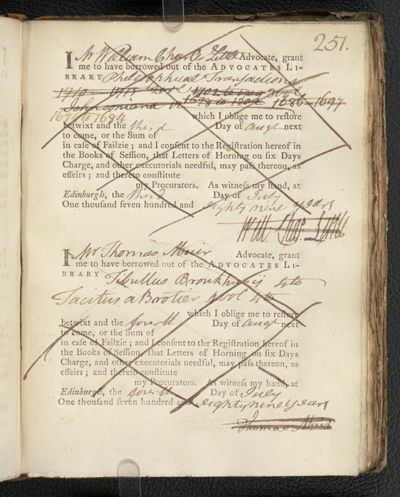 251.
I Mr William Charles Little Advocate, grant
me to have borrowed out of the ADVOCATES LI-
BRARY Philosophical Transactions
1686-1694
which I oblige me to restore
betwixt and the third Day of Augt next
to come, or the Sum of
in case of Failzie; and I consent to the Registration hereof in
the Books of Session, that Letters of Horning on six Days
Charge, and other executorials needful, may pass thereon, as
effeirs; and thereto constitute
my Procurators. As witness my hand, at
Edinburgh, the third Day of July
One thousand seven hundred and eighty nine years
Will. Char. Little
I Mr Thomas Muir Advocate, grant
me to have borrowed out of the ADVOCATES LI-
BRARY Tibullus Bronkhusij 4to
Tacitus a Brotier 4to
which I oblige me to restore
betwixt and the fourth Day of Augt next
to come, or the Sum of
in case of Failzie; and I consent to the Registration hereof in
the Books of Session, that Letters of Horning on six Days
Charge, and other executorials needful, may pass thereon, as
effeirs; and thereto constitute
my Procurators. As witness my hand, at
Edinburgh, the fourth Day of July
One thousand seven hundred and eighty nine years
Thomas Muir